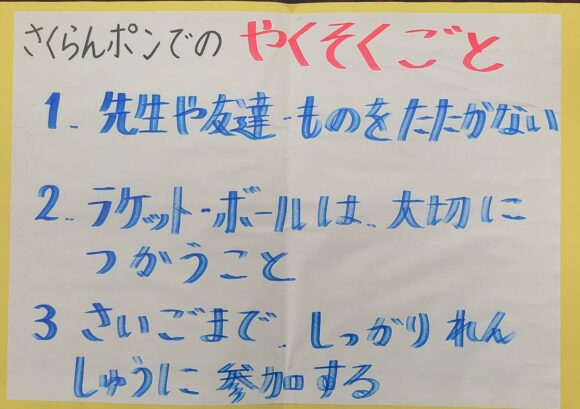 さくらんポンでの やくそくごと
1. 先生や友達・ものをたたかない
2. ラケット・ボールは、大切に
つかうこと
3 さいごまで、しっかりれん
しゅうに参加する